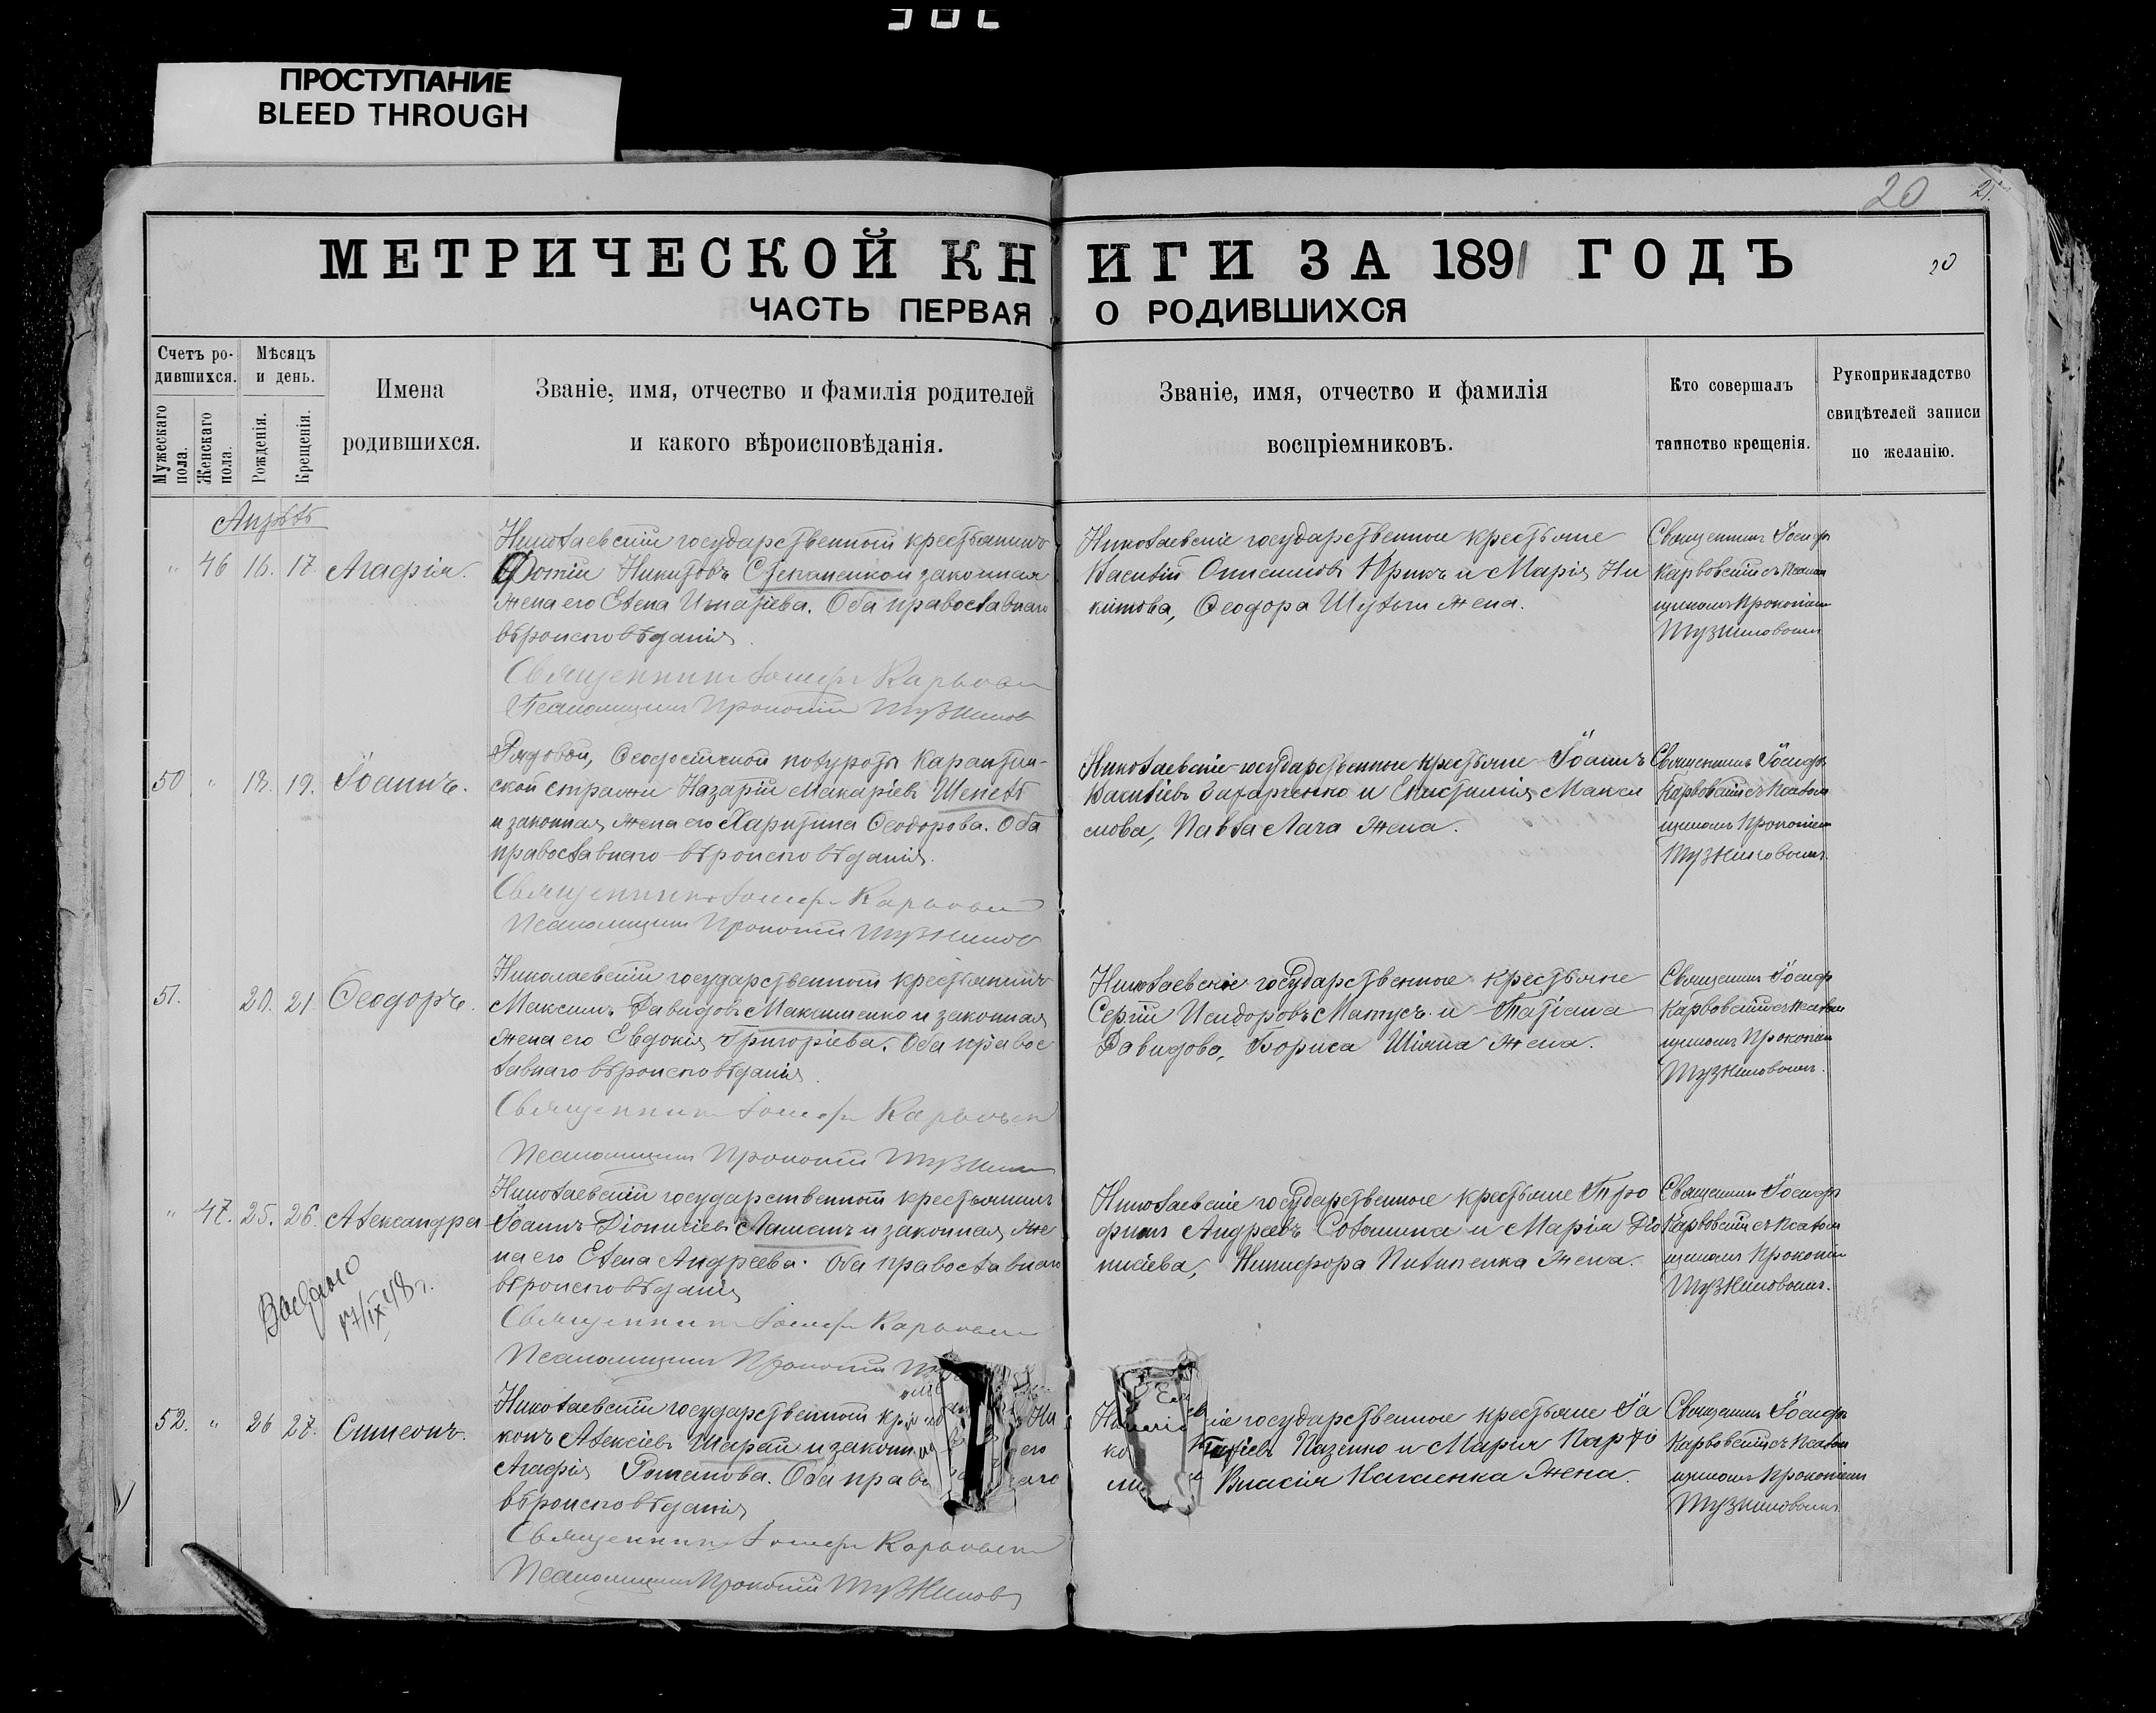 ПРОСТУПАНИЕ
BLEED THROUGH
20
21.
МЕТРИЧЕСКОЙ КНИГИ ЗА 1891 ГОДЪ
20
ЧАСТЬ ПЕРВАЯ О РОДИВШИХСЯ
Счетъ ро-
дившихся.
Мужескаго пола.
Женскаго пола.
Мѣсяцъ
и день.
Рожденія.
Крещенія.
Имена
родившихся.
Званіе, имя, отчество и фамилія родителей
и какого вѣроисповѣданія.
Званіе, имя, отчество и фамилія
воспріемниковъ.
Кто совершалъ
таинство крещенія.
Рукоприкладство
свидѣтелей записи
по желанію.
Апрѣль
" 46 16. 17. Агафія.
Николаевскій государственный крестьянинъ
Фотій Никитовъ Степаненко и законная
жена его Елена Игнатіева. Оба православнаго
вѣроисповѣданія.
Священникъ Іосифъ Карвовскій
Псаломщикъ Прокопій Тузниковъ
Николаевскіе государственные крестьяне
Василій Онисимовъ и Марія Ни
китова, Ѳеодора жена.
Священникъ Іосифъ
Карвовскій съ Псалом
щикомъ Прокопіемъ
Тузниковымъ
50 " 18. 19. Іоаннъ.
Рядовой, Ѳеодосійской полуроты Карантин-
ской стражи Назарій Макаріевъ Шепель
и законная жена его Харитина Ѳеодорова. Оба
православнаго вѣроисповѣданія.
Священникъ Іосифъ Карвовскій
Псаломщикъ Прокопій Тузниковъ
Николаевскіе государственные крестьяне Іоаннъ
Василіевъ Захарченко и Макси
мова, Павла Лача жена.
Священникъ Іосифъ
Карвовскій съ Псалом
щикомъ Прокопіемъ
Тузниковымъ.
51. 20. 21 Ѳеодоръ.
Николаевскій государственный крестьянинъ
Максимъ Давидовъ Максименко и законная
жена его Евдокія Григоріева. Оба право
славнаго вѣроисповѣданія.
Священникъ Іосифъ Карвовскій
Псаломщикъ Прокопій
Николаевскіе государственные крестьяне
Сергій Исидоровъ Матусъ и Татіана
Давидова, Бориса Шіяна жена.
Священникъ Іосифъ
Карвовскій съ Псалом
щикомъ Прокопіемъ
Тузниковымъ.
" 47. 25. 26. Александра
Николаевскій государственный крестьянинъ
Іоаннъ Діонисіевъ и законная же
на его Елена Андреева. Оба православнаго
вѣроисповѣданія
Священникъ Іосифъ Карвовскій
Псаломщикъ Прокопій
Николаевскіе государственные крестьяне Тро
фимъ Андреевъ Соломина и Марія Діо
нисіева, Никифора Пилипенка жена.
Священникъ Іосифъ
Карвовскій съ Псалом
щикомъ Прокопіемъ
Тузниковымъ.
Выдано
17/IX 48 г.
52. " 26 27. Симеонъ.
Николаевскій государственный Ни
конъ Алексіевъ Шарай и его
Агафія Романова. Оба
вѣроисповѣданія
Священникъ Іосифъ Карвовскій
Псаломщикъ Прокопій Тузниковъ
государственные крестьяне Іа
ко Пазенко и Марія
Власія жена.
Священникъ Іосифъ
Карвовскій съ Псалом
щикомъ Прокопіемъ
Тузниковымъ